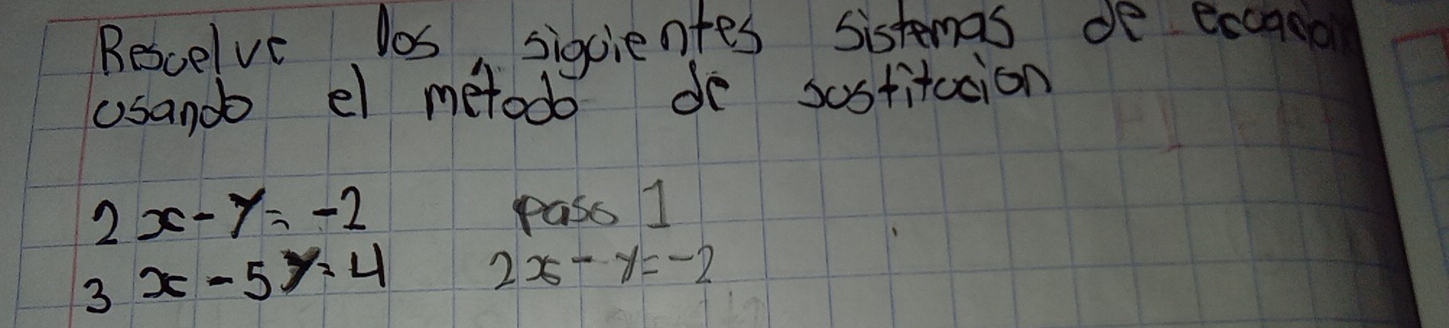 Resuelve los siguientes sistemas de ecuacion
usando el método de sustitucion
2x-y=-2 paso 1
3x-5y=4 2x-y=-2